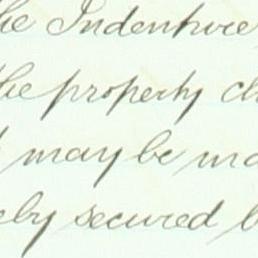 the Indenture
the property ch
may be ma
eby secured b